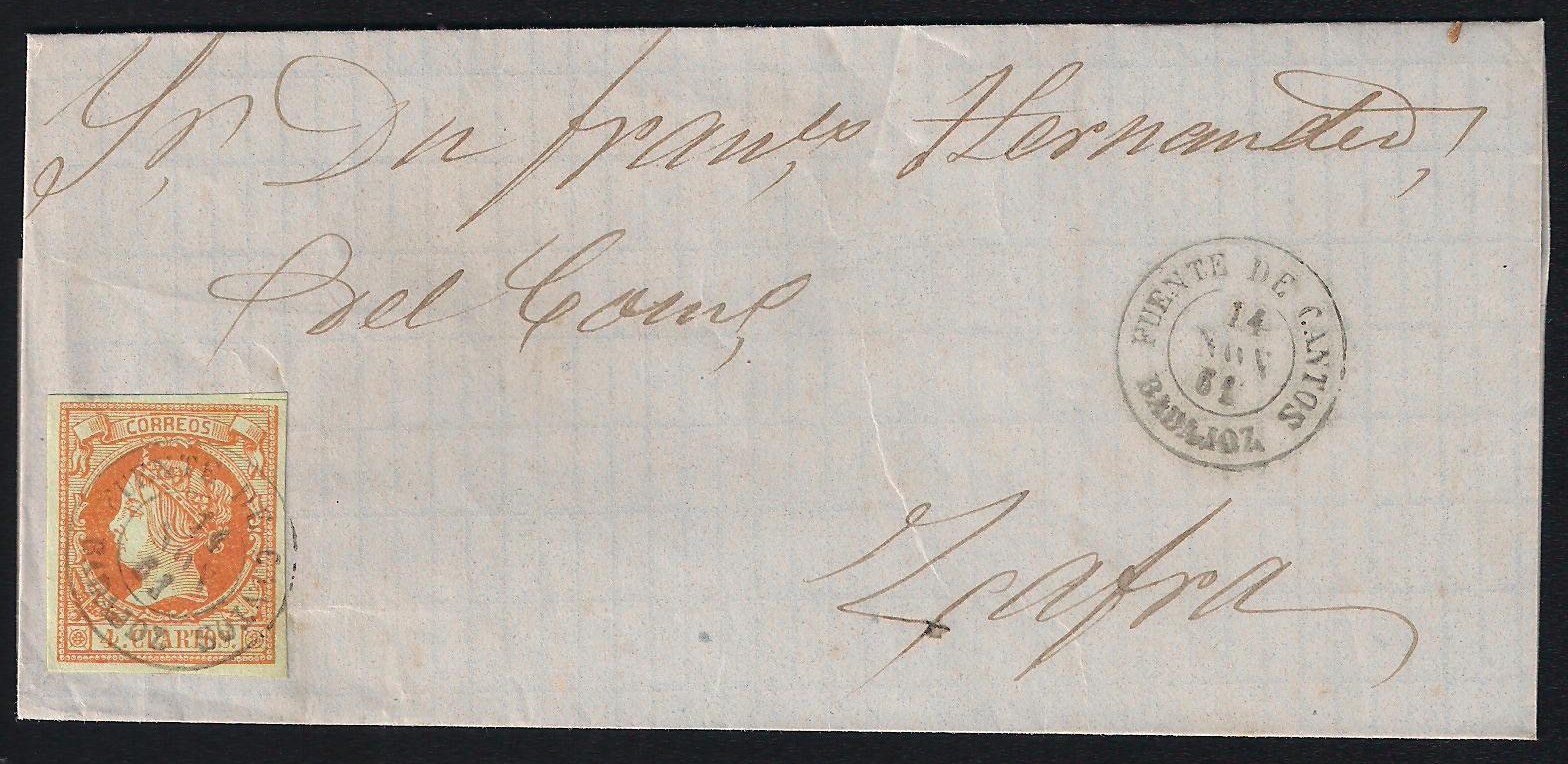 Sr, Dn Franco, Hernandez,
del Como,
FUENTE DE CANTOS
14
NOV
61
BADAJOZ
CORREOS
FUENTE DE CANTOS
14
61
BADAJOZ
4. CUARTOS.
Zafra